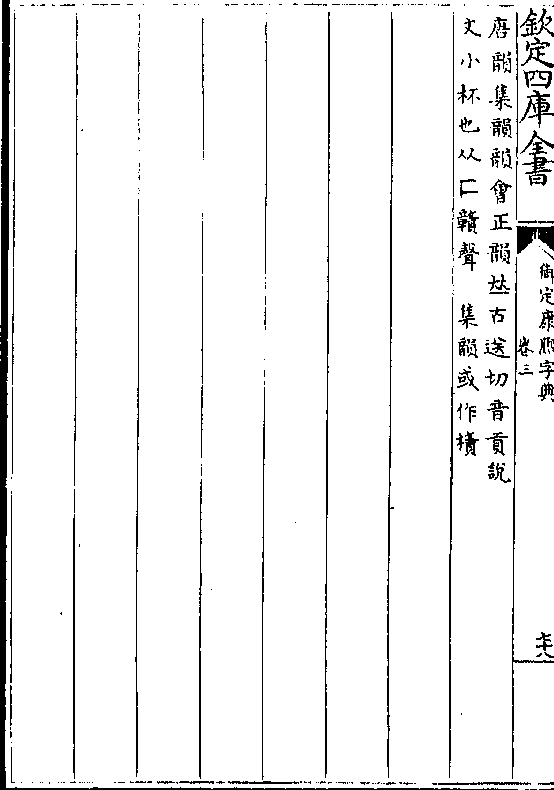 欽定四庫全書
御定康熙字典
卷三
唐韻集韻韻會正韻𠀤古送切音貢說
文小杯也从匚贛聲 集韻或作㯯